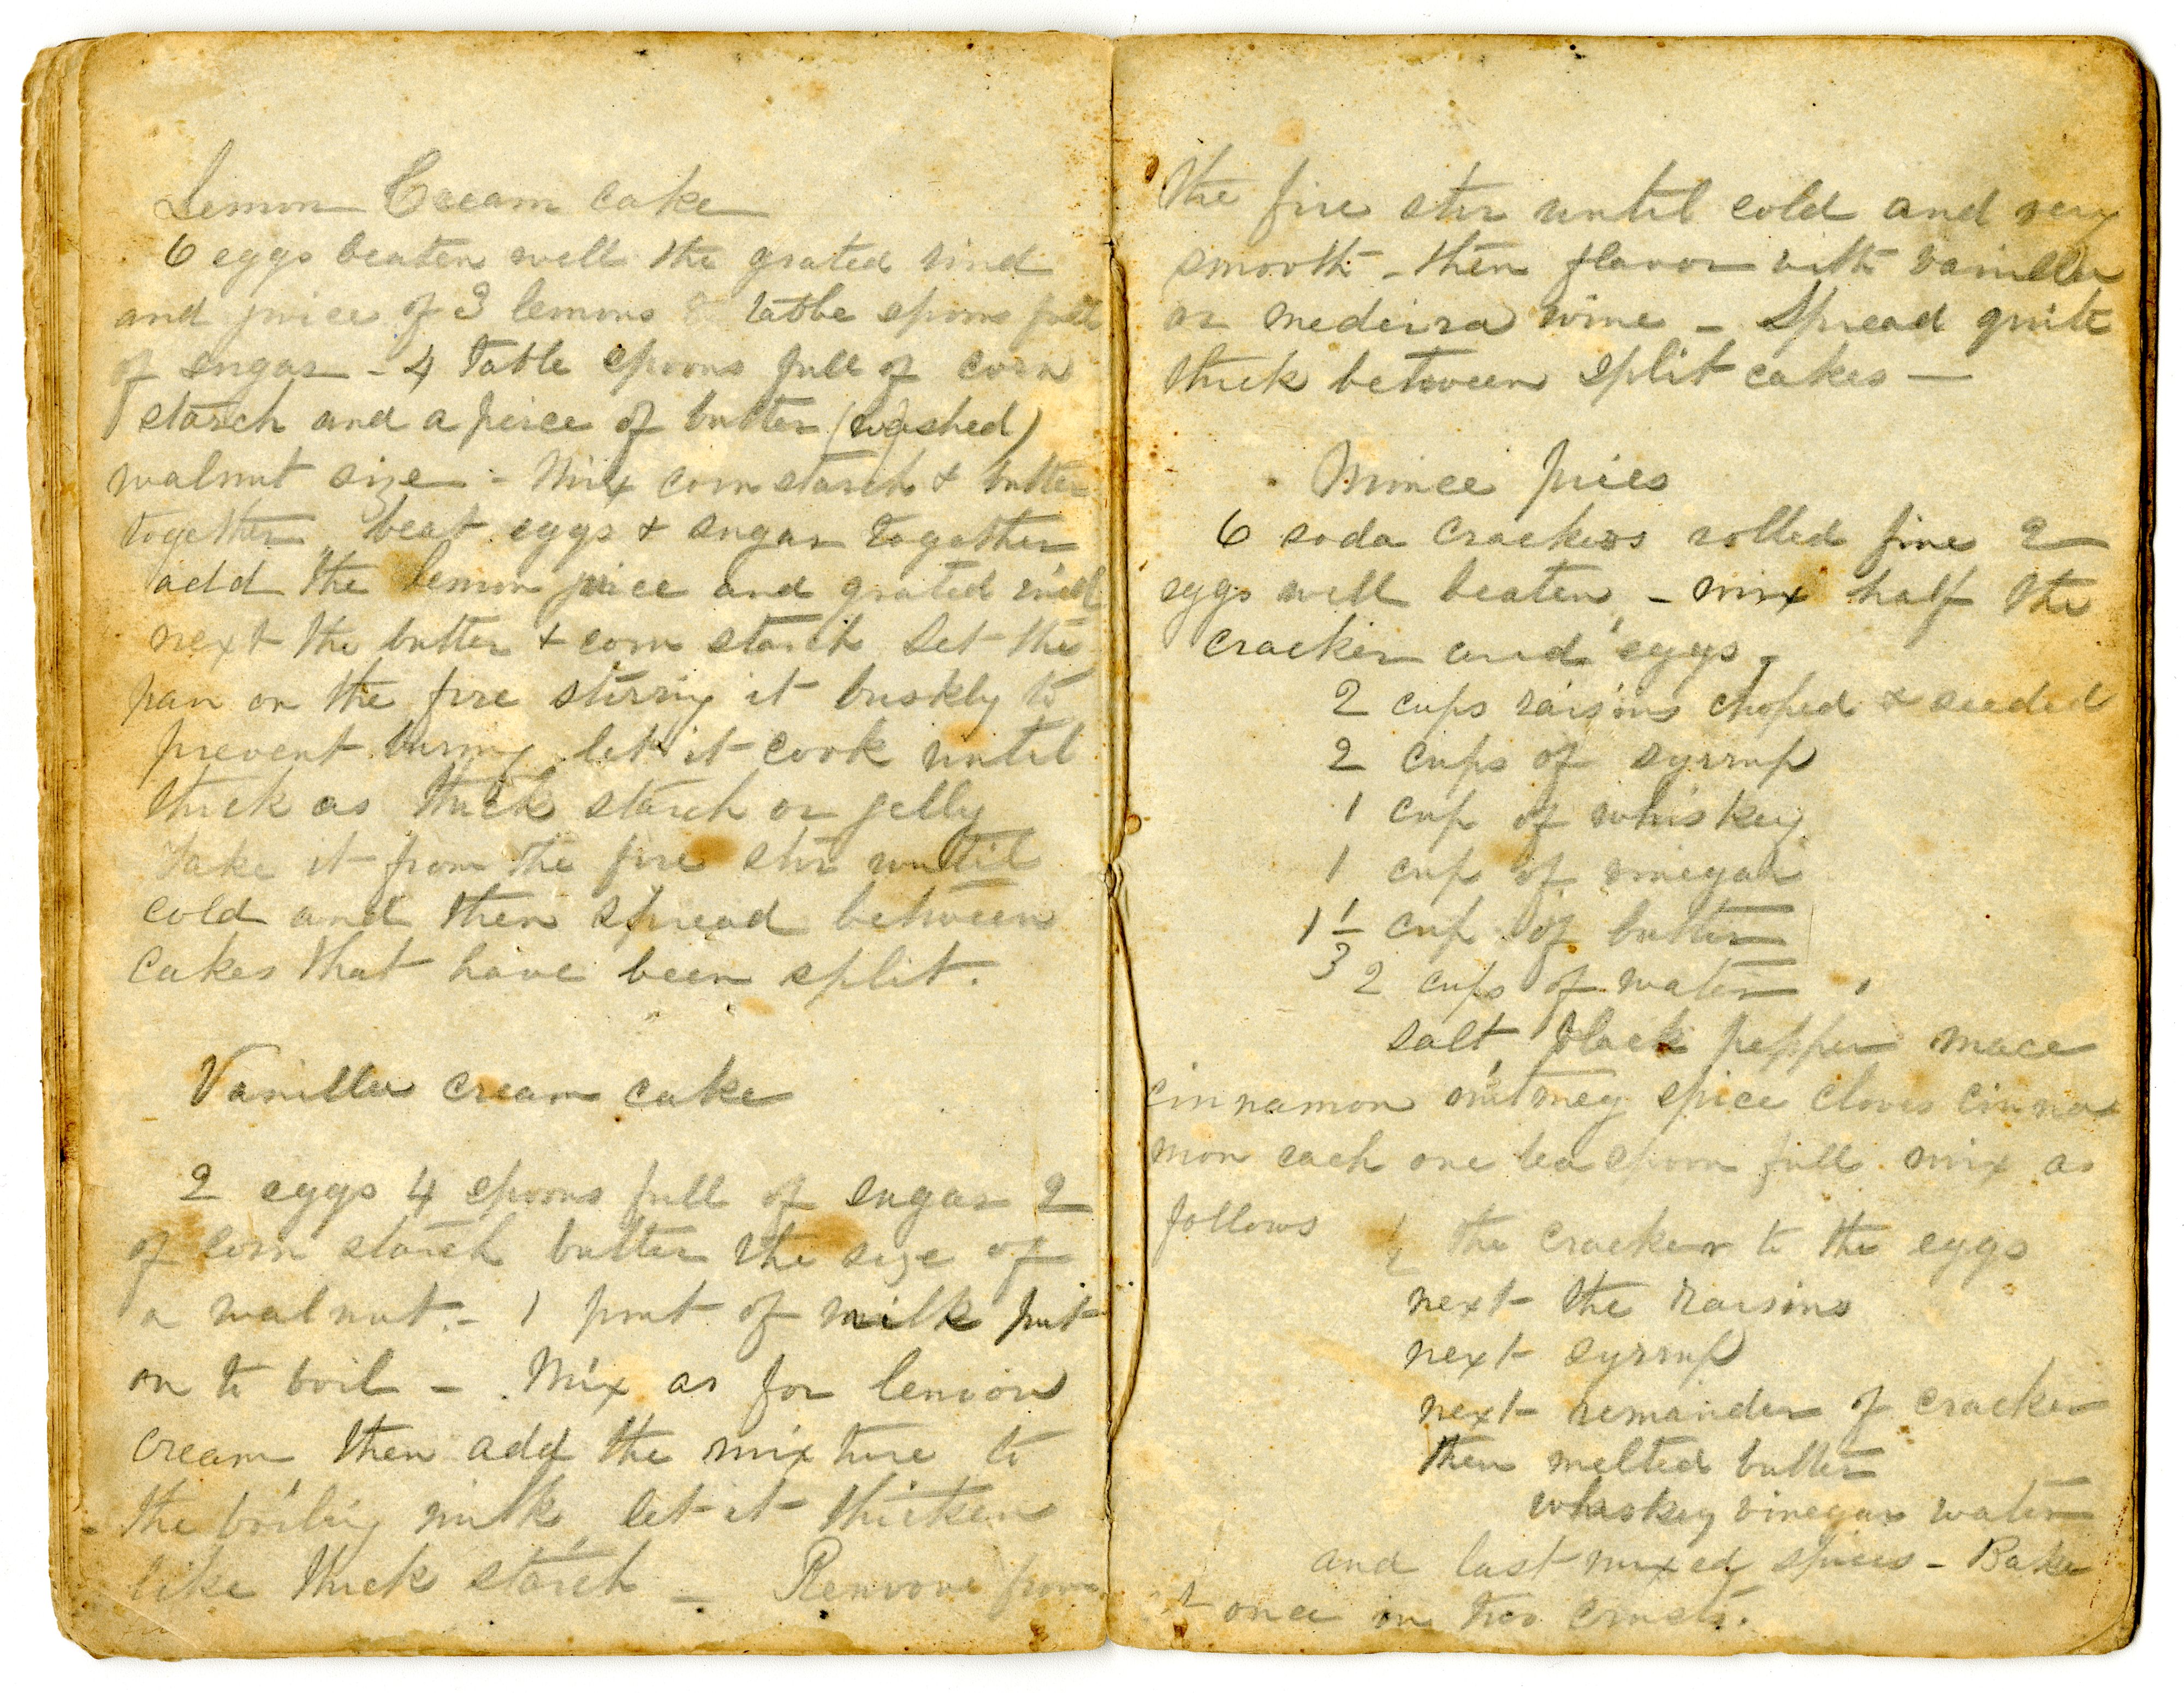 Lemon Cream cake
6 eggs beaten well the grated rind
and juice of 3 lemons table spoons full
of sugar - 4 table spoons full of corn
starch and a peice of butter (washed)
walnut size - Mix corn starch & butter
together beat eggs & sugar together
add the lemon juice and grated rind
next the butter & corn starch Set the
pan on the fire stirring it briskly to
prevent burning let it cook until
thick as thick starch or jelly
Take it from the fire stir until
cold and then spread between
cakes that have been split.
Vanilla cream cake
2 eggs 4 spoons full of sugar 2
of corn starch butter the size of
a walnut. - 1 pint of milk put
on to boil - Mix as for lemon
cream then add the mixture to
the boiling milk, let it thicken
like thick starch - Remove from
the fire stir until cold and very
smooth - then flavor with vanilla
or medeira wine - Spread quite
thick between split cakes -
Mince pies
6 soda crackers rolled fine 2
eggs well beaten - mix half the
cracker and eggs -
2 cups raisins choped & seeded
2 cups of syrrup
1 cup of whiskey
1 cup of vinegar
1 1/3 cup of butter
2 cups of water
salt, black pepper mace
cinnamon nutmeg spice cloves cinna
mon each one tea spoon full mix as
follows 1/2 the cracker to the eggs
next the raisins
next syrrup
next remainder of cracker
then melted butter
whiskey vinegar water
and last mixed spices - Bake
at once in two crusts.